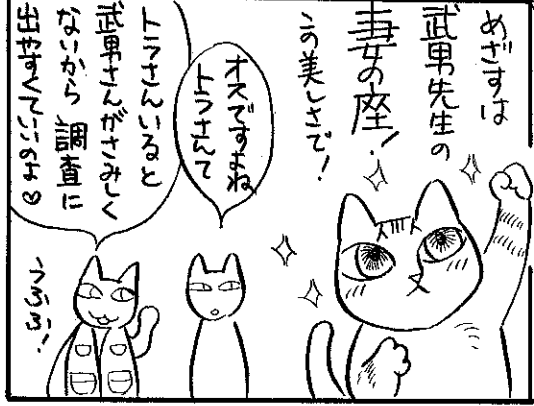 めざすは
武男先生の
妻の座！
この美しさで！
オスですよね
トラさんて
トラさんいると
武男さんがさみしく
ないから調査に
出やすくていいのよ♡
うふふ！